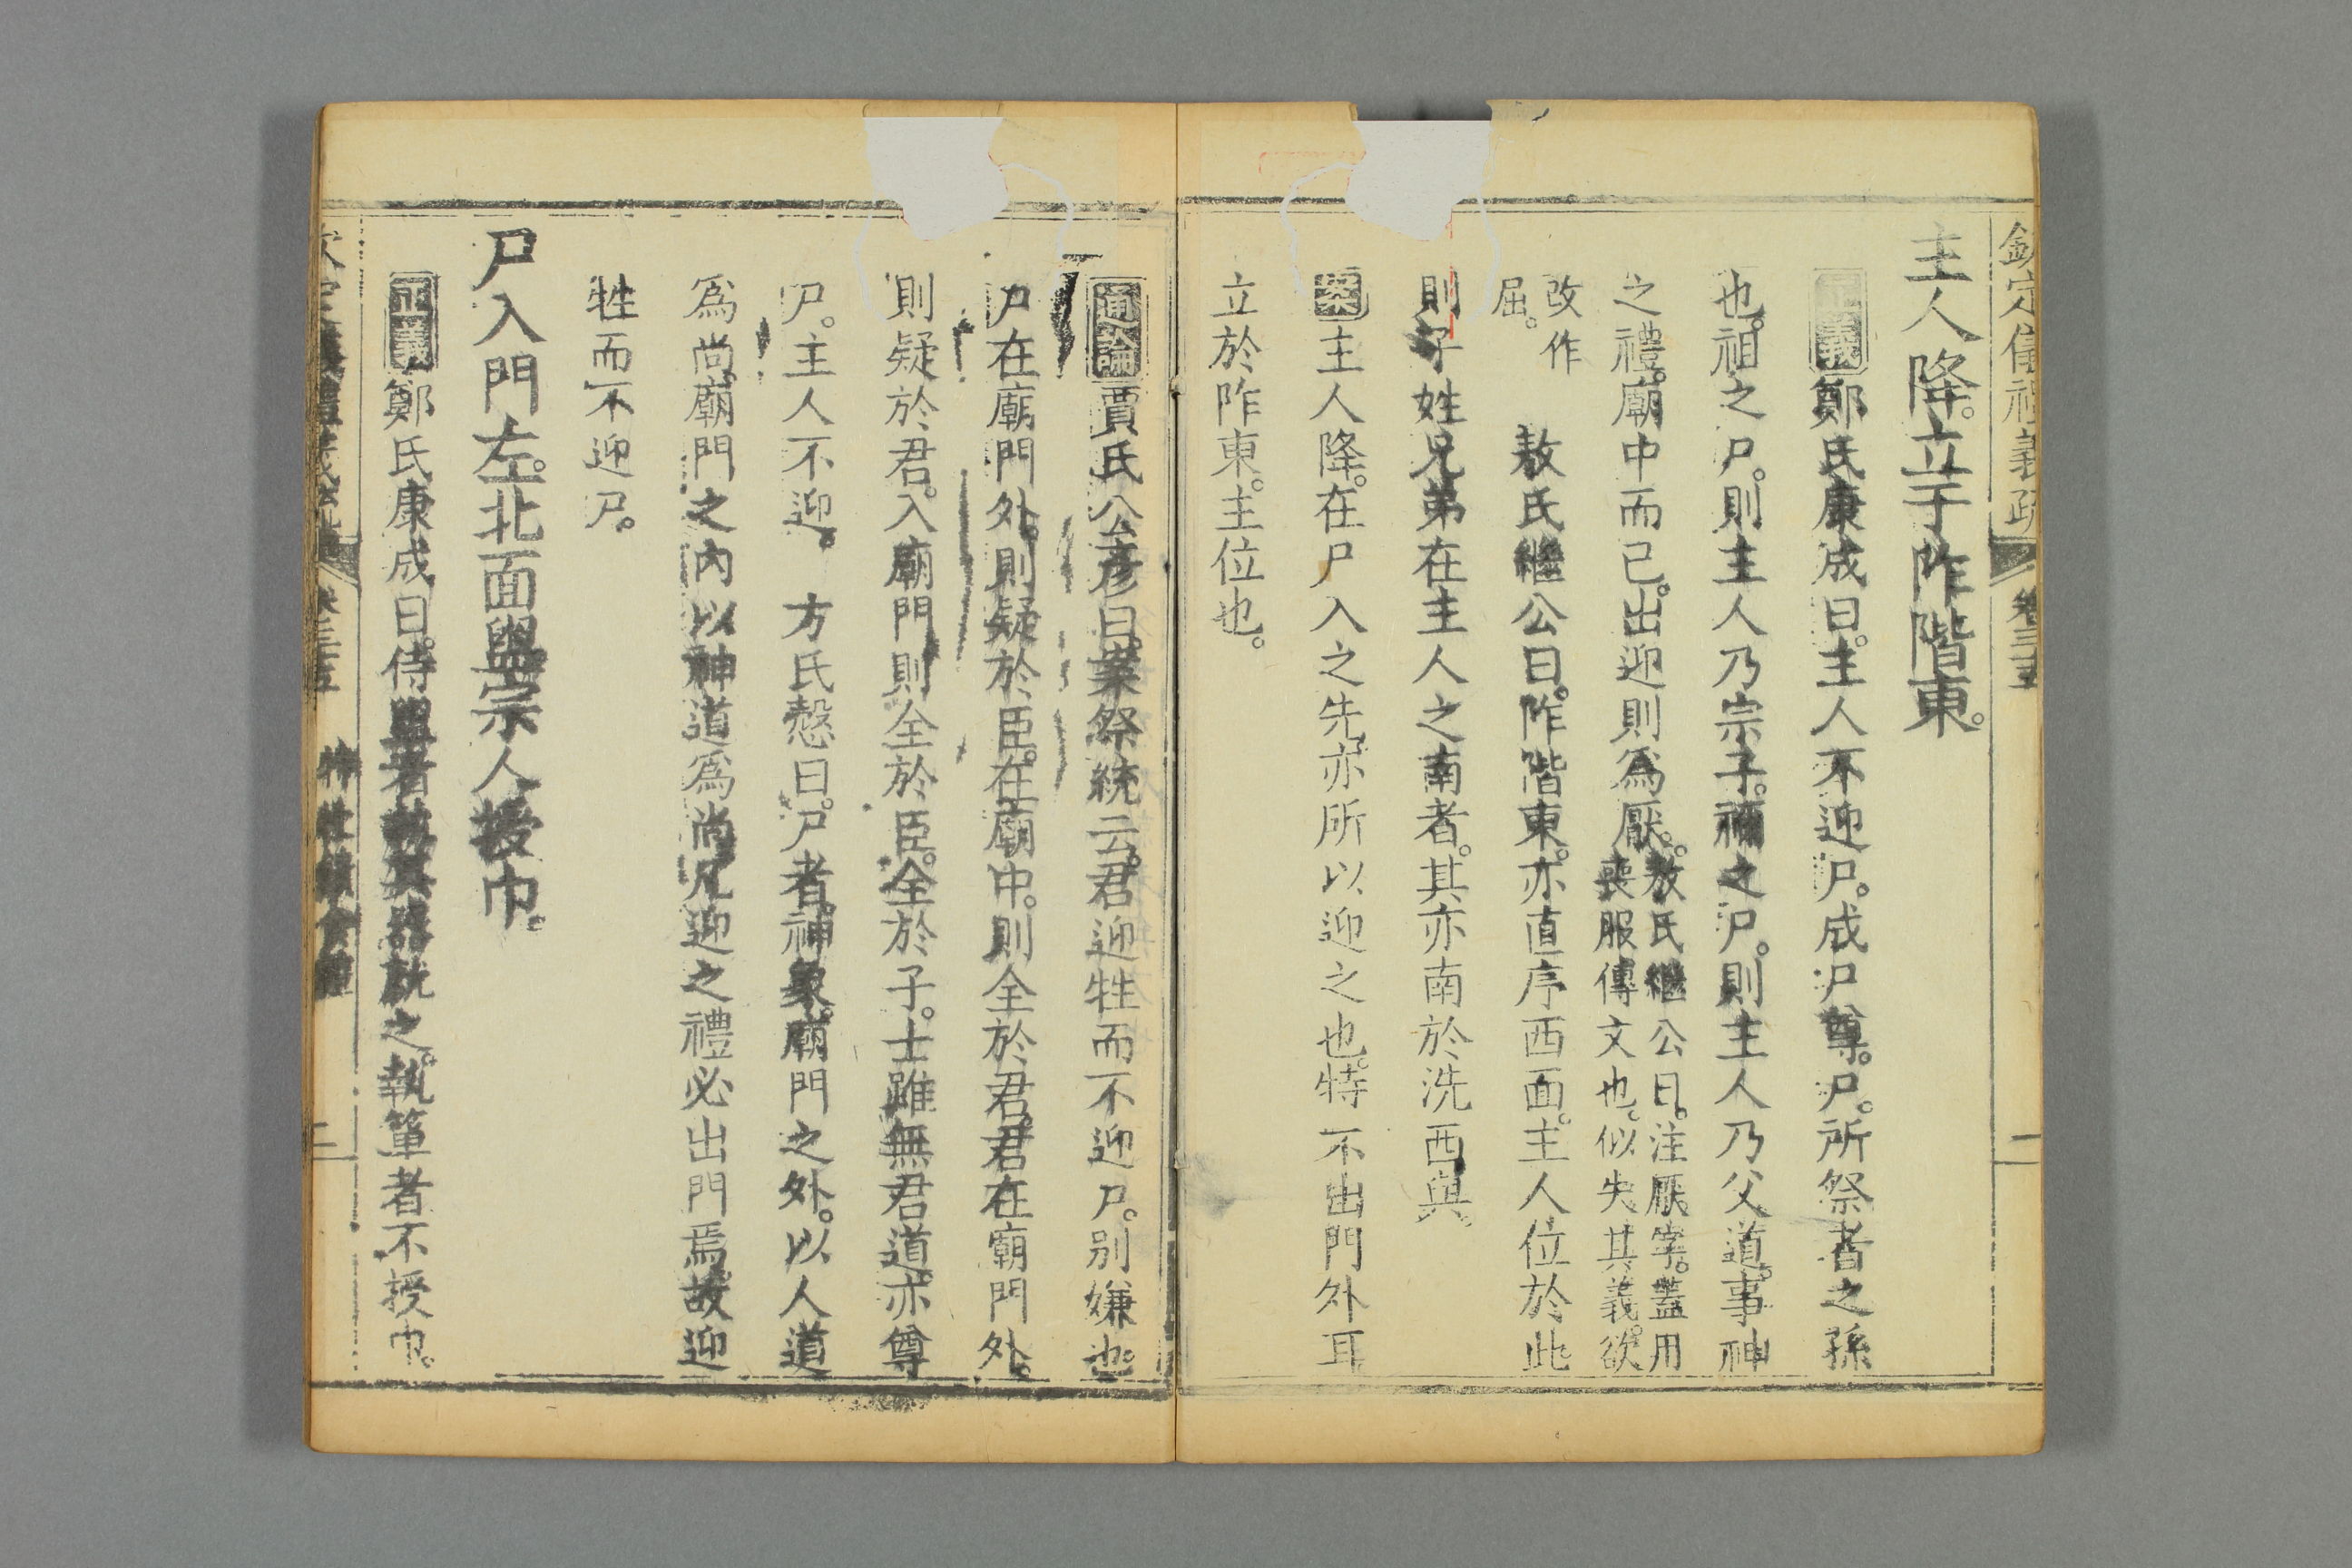 欽定儀禮義疏 卷三十五 二
主人降。立于阼階東。
正義鄭氏康成曰。主人不迎尸。成尸尊。尸。所祭者之孫
也。祖之尸。則主人乃宗子。禰之尸。則主人乃父道。事神
之禮。廟中而已。出迎則爲厭。敖氏繼公曰。注厭字。蓋用
喪服傳文也。似失其義。欲
改作
屈。 敖氏繼公曰。阼階東。亦直序西面。主人位於此。
則子姓兄弟在主人之南者。其亦南於洗西與。
案主人降。在尸入之先。亦所以迎之也。特不出門外耳
立於阼東。主位也。
通論賈氏公彥曰。案祭統云。君迎牲而不迎尸。別嫌也。
尸在廟門外。則疑於臣。在廟中。則全於君。君在廟門外。
則疑於君。入廟門則全於臣。全於子。士雖無君道。亦尊
尸。主人不迎。 方氏慤曰。尸者。神象。廟門之外。以人道
爲尚。廟門之內以神道爲尚。凡迎之禮必出門焉。故迎
牲而不迎尸。
尸入門左。北面盥。宗人授巾。
正義鄭氏康成曰。侍盥者執其器就之。執簞者不授巾。
欽定儀禮義疏 卷三十五 特牲饋食禮 二